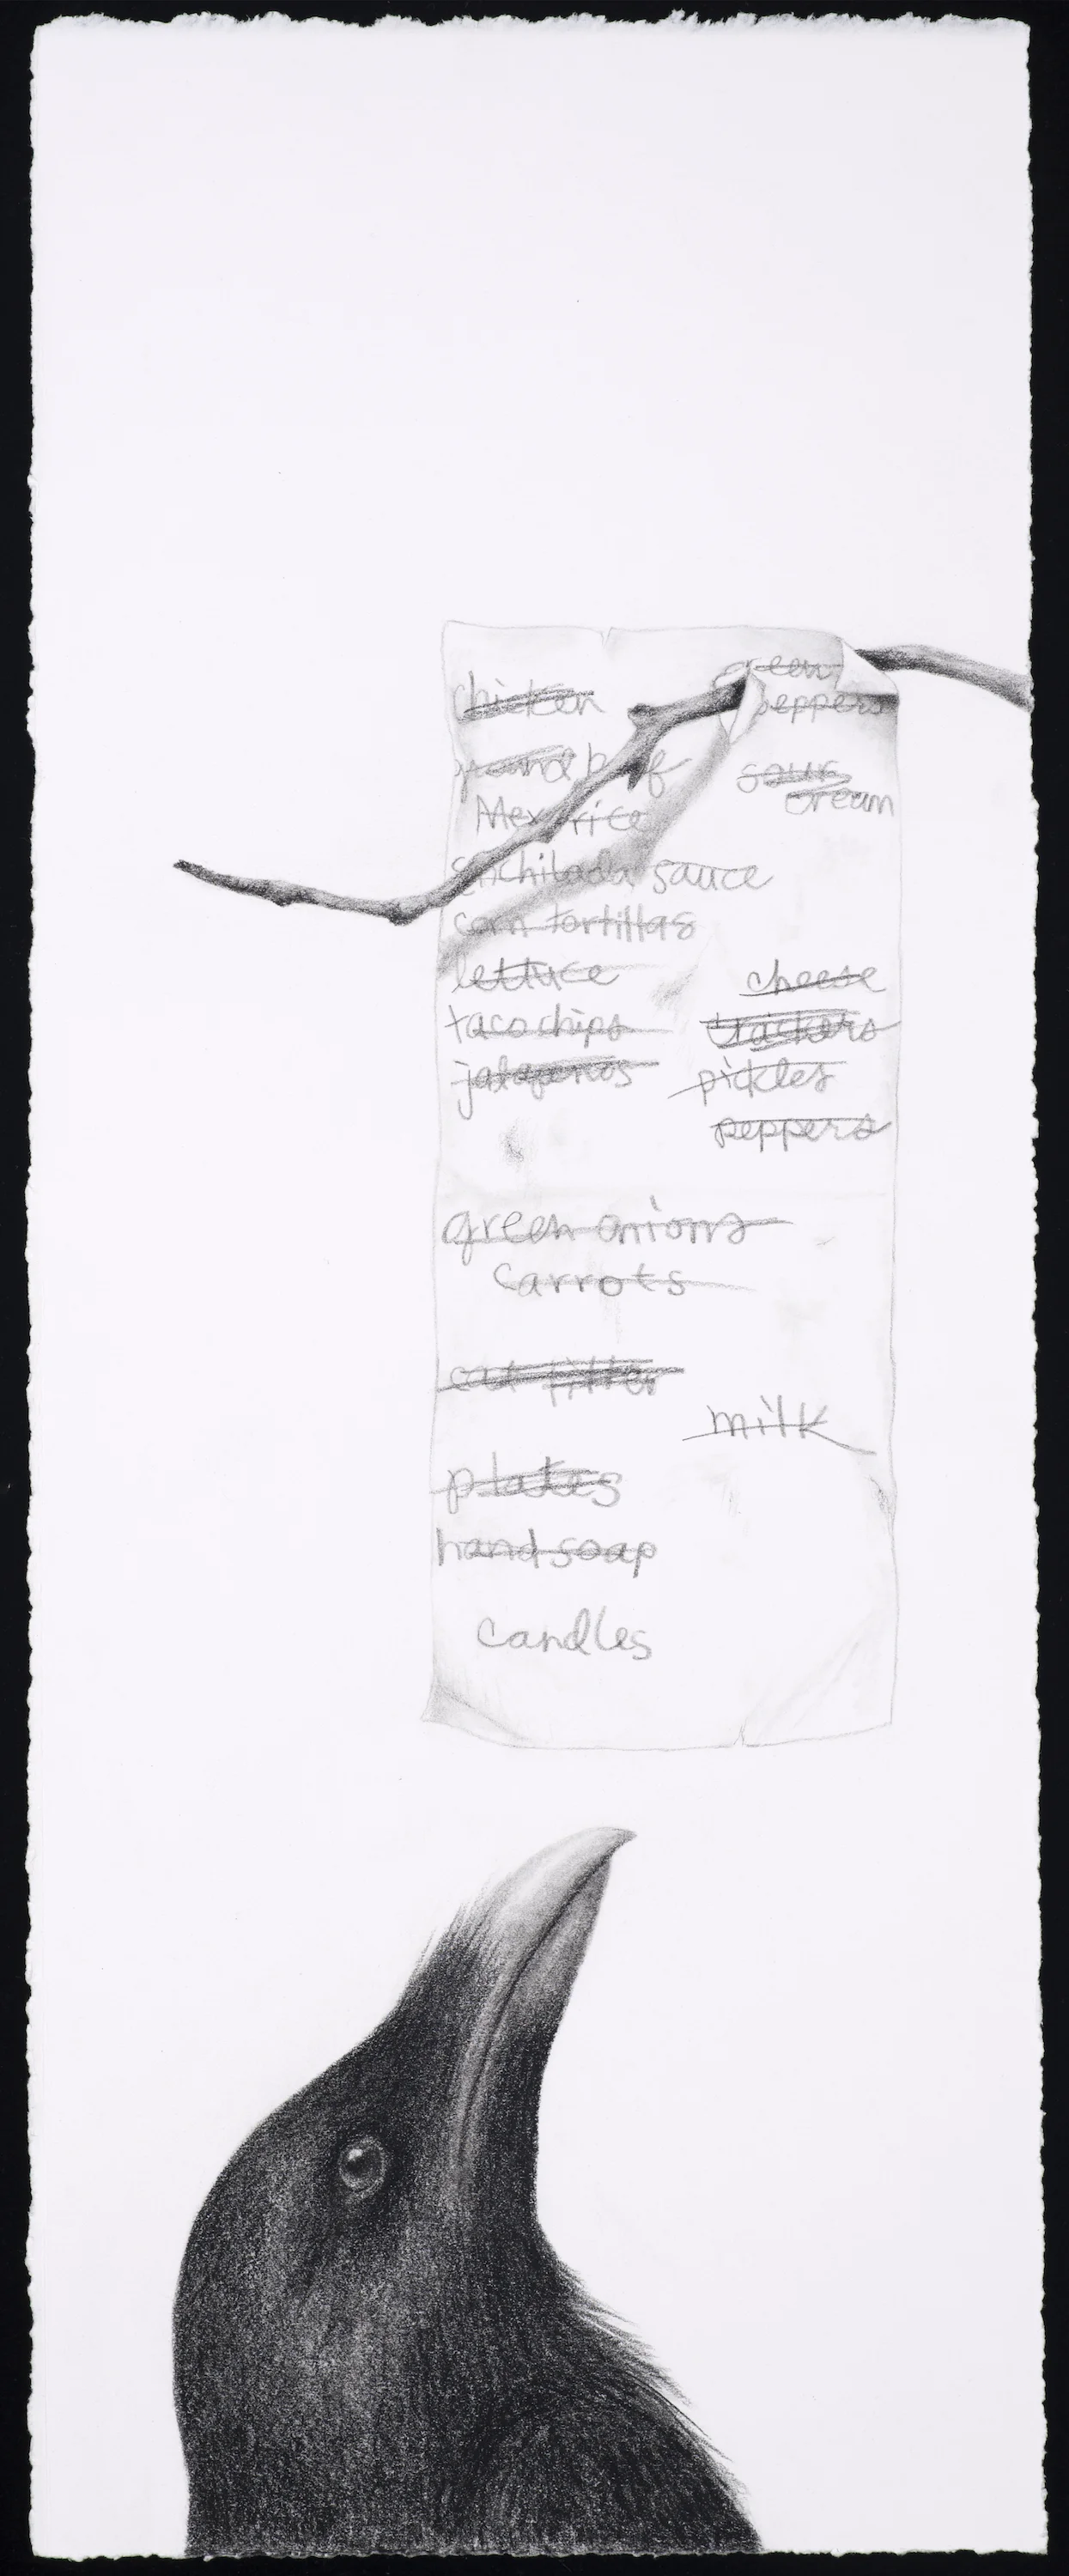 chicken
green
peppers
ground beef
sour
cream
Mex rice
enchilada sauce
corn tortillas
lettuce
cheese
taco chips
crackers
jalapenos
pickles
peppers
green onions
carrots
cat litter
milk
plates
hand soap
candles